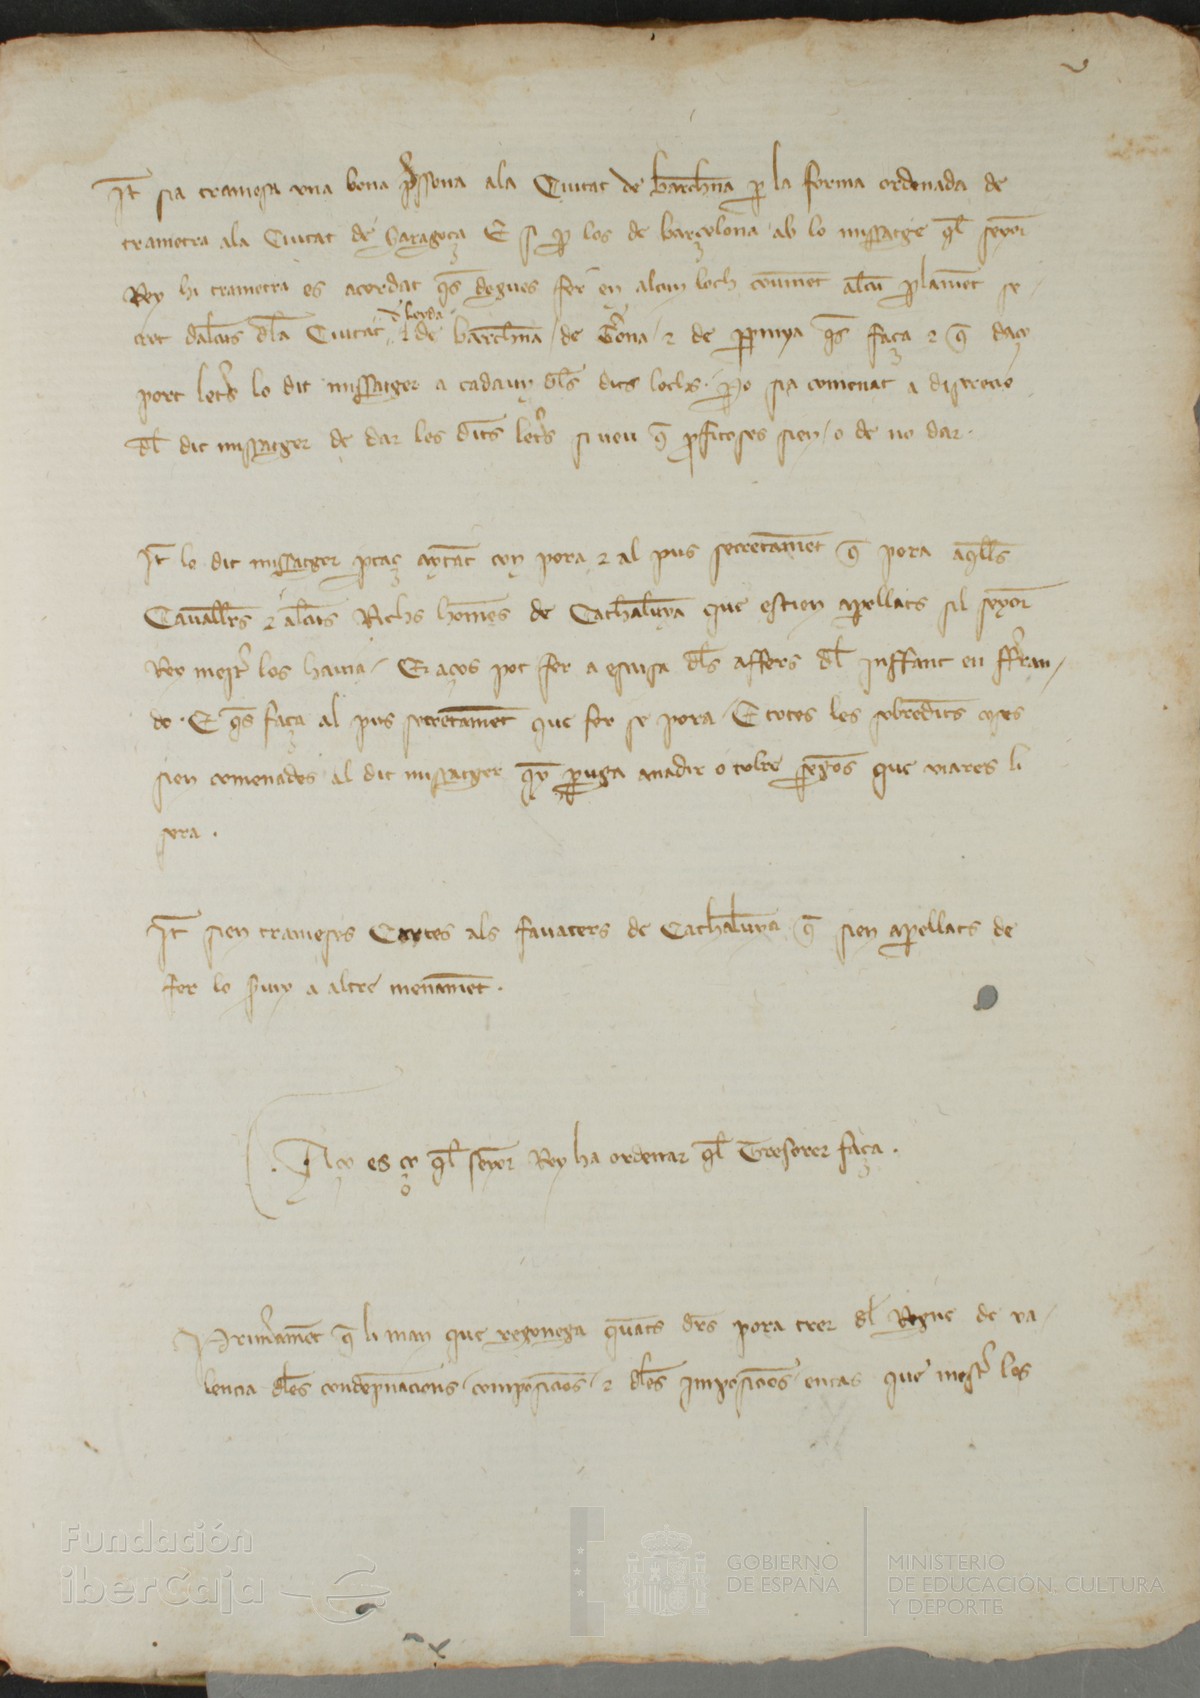 v
It sia tramesa una bona pssona ala Ciutat de barchna p la forma ordenada de
trametra ala Ciutat de Saragoça E si p los de barçelona ab lo missatge ql senyor
Rey hi trametra es acordat qs degues fer en alcun loch couinent alcu plament se
cret dalcuts dla Ciutat d leyda
de barchna / de Gerona / τ de ppinya qs faça τ q daço
port letrs lo dit missatger a cadaun dls dits lochs. Po sia comenat a discrecio
dl dit missatger de dar les dits letrs si veu q pfitoses sien / o de no dar.
It lo dit missatger pcaç aytāt con pora τ al pus secretamēt q pora aqlls
Cauallrs τ alcuts Richs homēs de Cathalunya que estien apellats sil senyor
Rey mestr los hauia / Et aços pot fer a escusa dls affers dl inffant en ffran
do. E qs faça al pus secretamēt que fer se pora / E totes les sobredits coses
sien comenades al dit missatger qy puga anadir o tolre segons que viares li
sera.
It sien trameses Cartes als fauaters de Cathalunya q sien apellats de
fer lo suiy a altre menamēt.
. Aço es ço ql senyor Rey ha ordenat ql Tresorer faça.
Primamēt q li man que regonega quāts drs pora trer dl Regne de va
lencia dles condepnacions / composicions / τ dles imposicions encas que mestr los
Fundación
iberCaja
GOBIERNO
DE ESPAÑA
MINISTERIO
DE EDUCACIÓN, CULTURA
Y DEPORTE